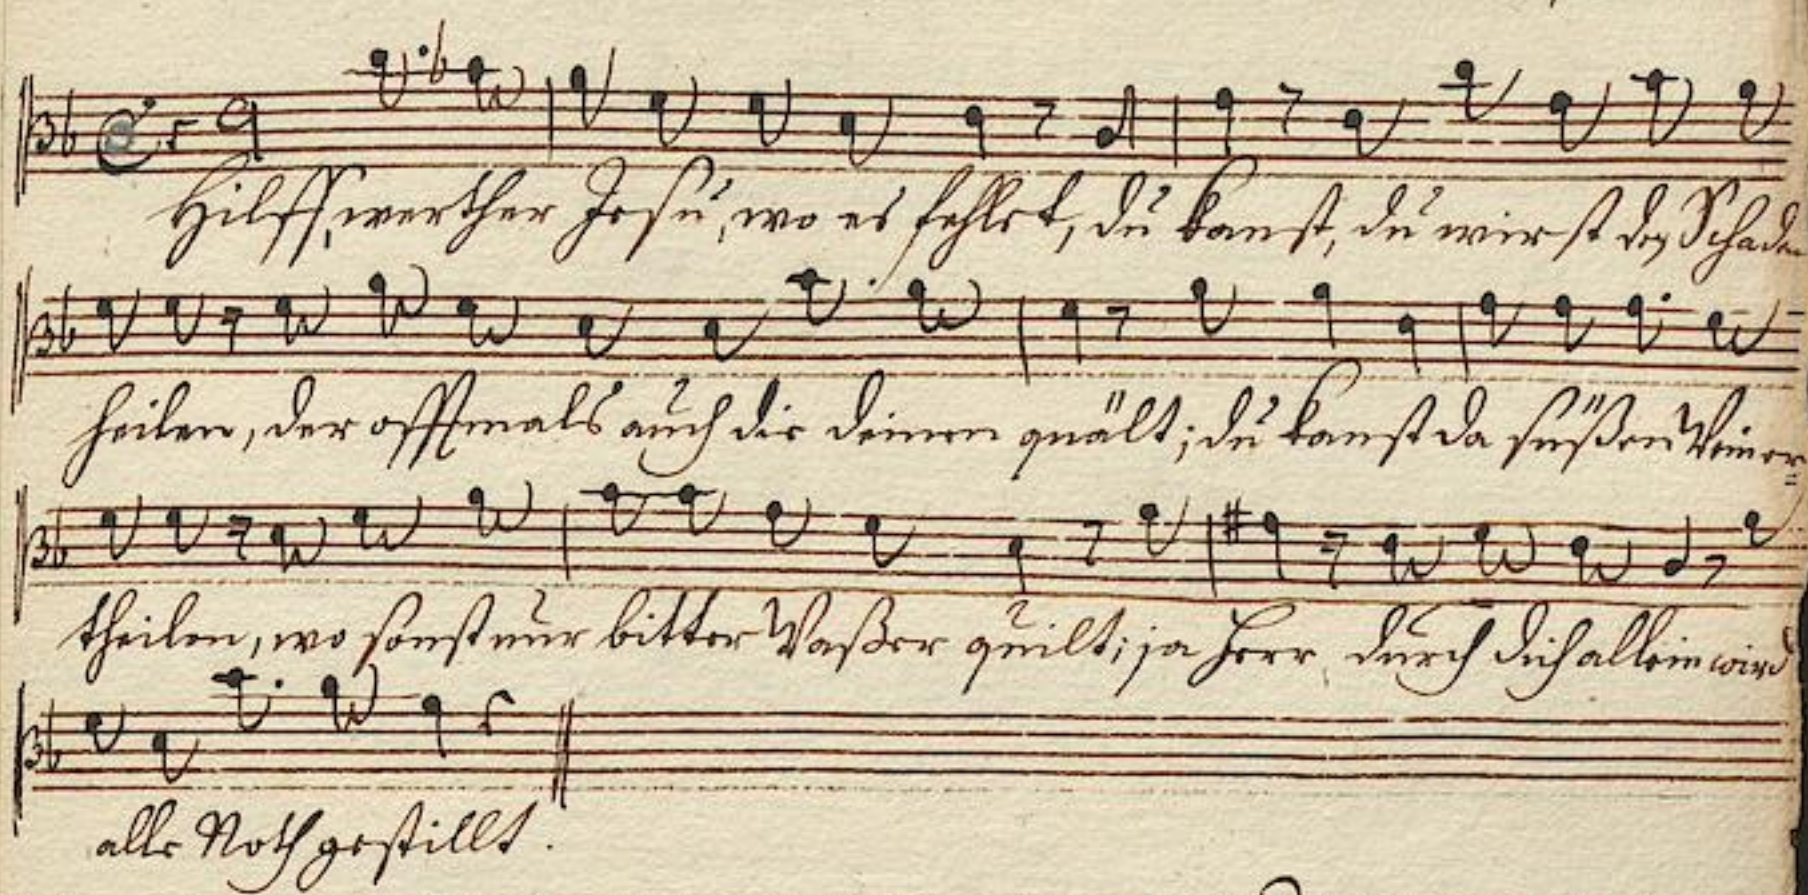 Hilff, werther Jesu, wo es fehlet, du kanst, du wirst den Schaden
heilen, der offtmals auch die deinen quält; du kanst da süßen Wein er=
theilen, wo sonst nur bitter Waßer quillt; ja Herr, durch dich allein wird
alle Noth gestillt.